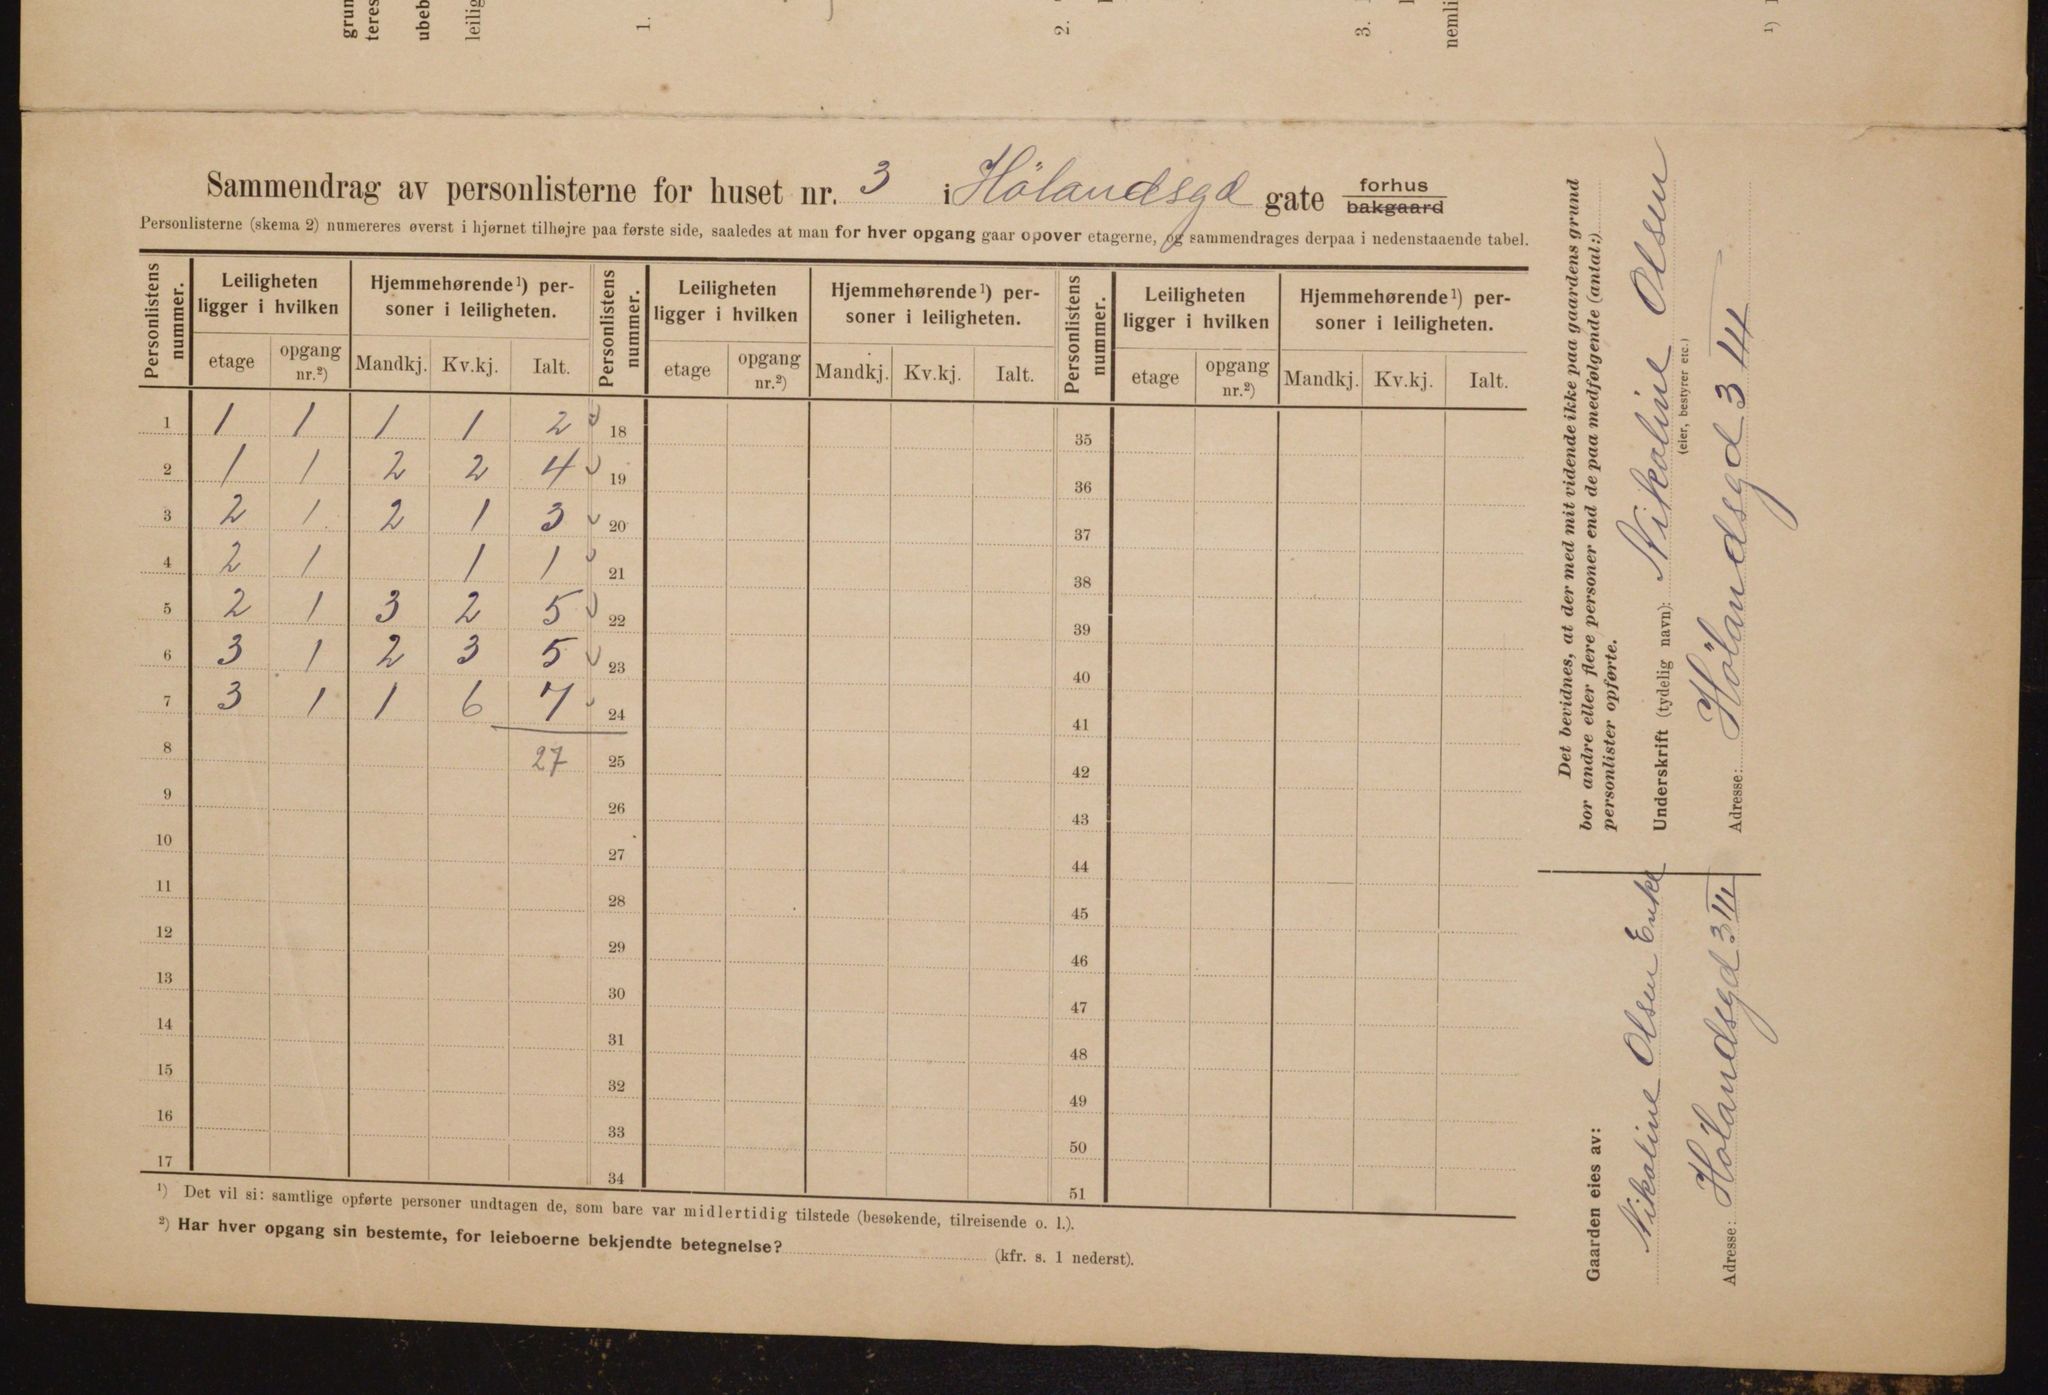 grun
teres
ubeb
leilig
1.
2.
3.
nemli
¹)
Sammendrag av personlisterne for huset nr. 3 i Hölandsgd gate forhus
bakgaard
Personlisterne (skema 2) numereres øverst i hjørnet tilhøjre paa første side, saaledes at man for hver opgang gaar opover etagerne, og sammendrages derpaa i nedenstaaende tabel.
Personlistens nummer. Leiligheten ligger i hvilken Hjemmehørende¹) personer i leiligheten. Personlistens nummer. Leiligheten ligger i hvilken Hjemmehørende¹) personer i leiligheten. Personlistens nummer. Leiligheten ligger i hvilken Hjemmehørende¹) personer i leiligheten.
etage opgang nr.²) Mandkj. Kv.kj. Ialt. etage opgang nr.²) Mandkj. Kv.kj. Ialt. etage opgang nr.²) Mandkj. Kv.kj. Ialt.
1 1 1 1 1 2 18 35
2 1 1 2 2 4 19 36
3 2 1 2 1 3 20 37
4 2 1 1 1 21 38
5 2 1 3 2 5 22 39
6 3 1 2 3 5 23 40
7 3 1 1 6 7 24 41
8 27 25 42
9 26 43
10 27 44
11 28 45
12 29 46
13 30 47
14 31 48
15 32 49
16 33 50
17 34 51
¹) Det vil si: samtlige opførte personer undtagen de, som bare var midlertidig tilstede (besøkende, tilreisende o. l.).
²) Har hver opgang sin bestemte, for leieboerne bekjendte betegnelse? (kfr. s. 1 nederst).
Det bevidnes, at der med mit vidende ikke paa gaardens grund
bor andre eller flere personer end de paa medfølgende (antal:)
personlister opførte.
Underskrift (tydelig navn): Nikoline Olsen
(eier, bestyrer etc.)
Adresse: Hölandsgd 3 III
Gaarden eies av:
Nikoline Olsen Enke
Adresse: Hölandsgd 3 III